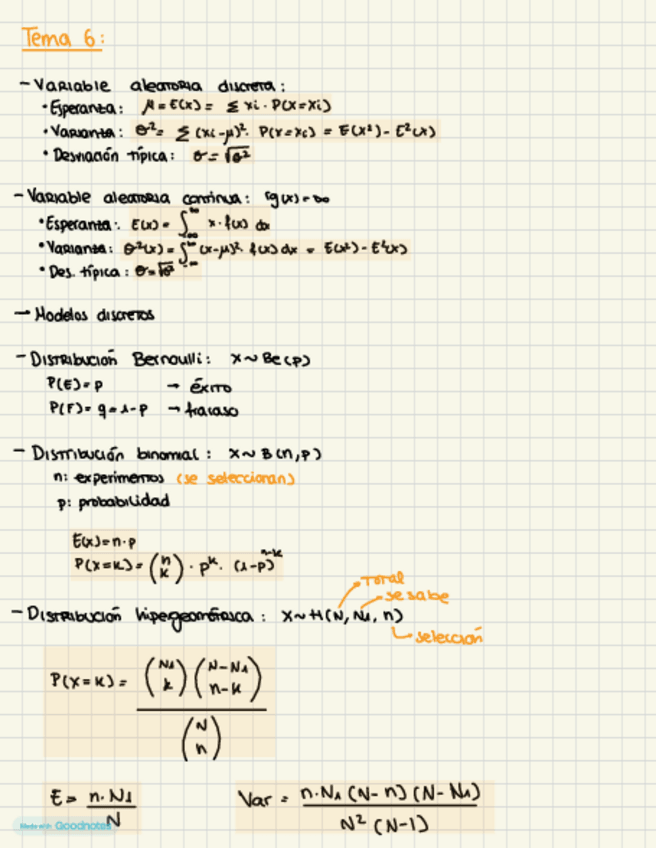 Tema 6:
- Variable aleatoria discreta:
• Esperanza: μ = E(x) = Σ xi · P(X=xi)
• Varianza: σ² = Σ (xi-μ)² · P(X=xi) = E(x²) - E²(x)
• Desviación típica: σ = √σ²
- Variable aleatoria continua:
• Esperanza: E(x) = ∫_{-∞}^{∞} x · f(x) dx
• Varianza: σ²(x) = ∫_{-∞}^{∞} (x-μ)² · f(x) dx = E(x²) - E²(x)
• Des. típica: σ = √σ²
→ Modelos discretos
- Distribución Bernoulli: X ~ Be(p)
P(E) = p → éxito
P(F) = q = 1-p → fracaso
- Distribución binomial: X ~ B(n, p)
n: experimentos (se seleccionan)
p: probabilidad
E(x) = n · p
P(X=k) = (n k) · p^k · (1-p)^{n-k}
Total
se sabe
- Distribución hipergeométrica: X ~ H(N, N1, n)
selección
P(X=k) = (N1 k) (N-N1 n-k) / (N n)
E = n · N1 / N Var = n · N1 (N-n) (N-N1) / N² (N-1)
Made with Goodnotes